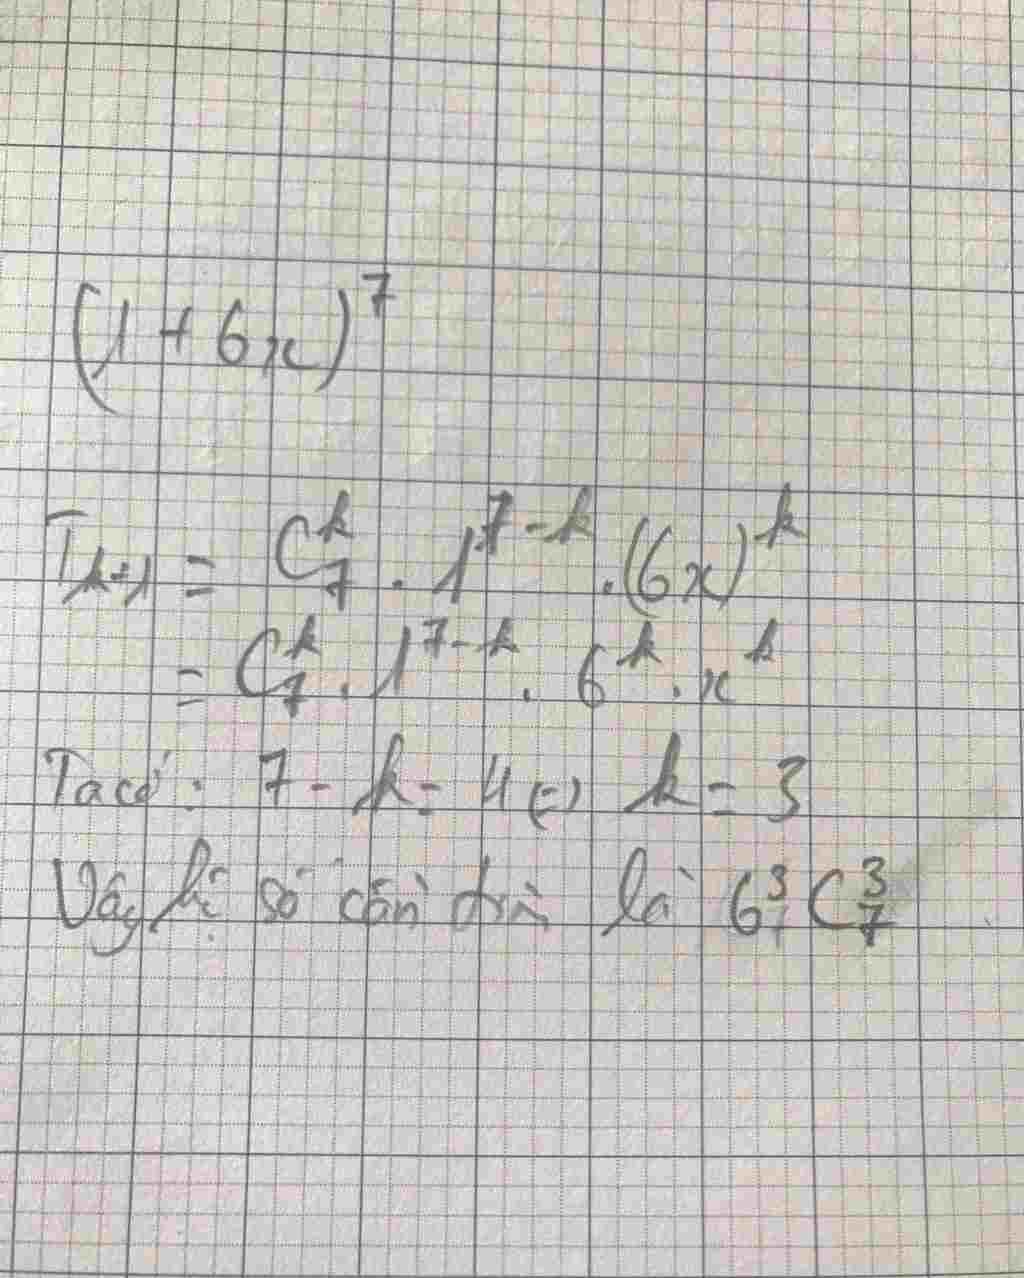 (1 + 6x)^7
T_{k+1} = C_7^k . 1^{7-k} . (6x)^k
= C_7^k . 1^{7-k} . 6^k . x^k
Ta có : 7 - k = 4 (=) k = 3
Vậy hệ số cần tìm là 6^3 C_7^3